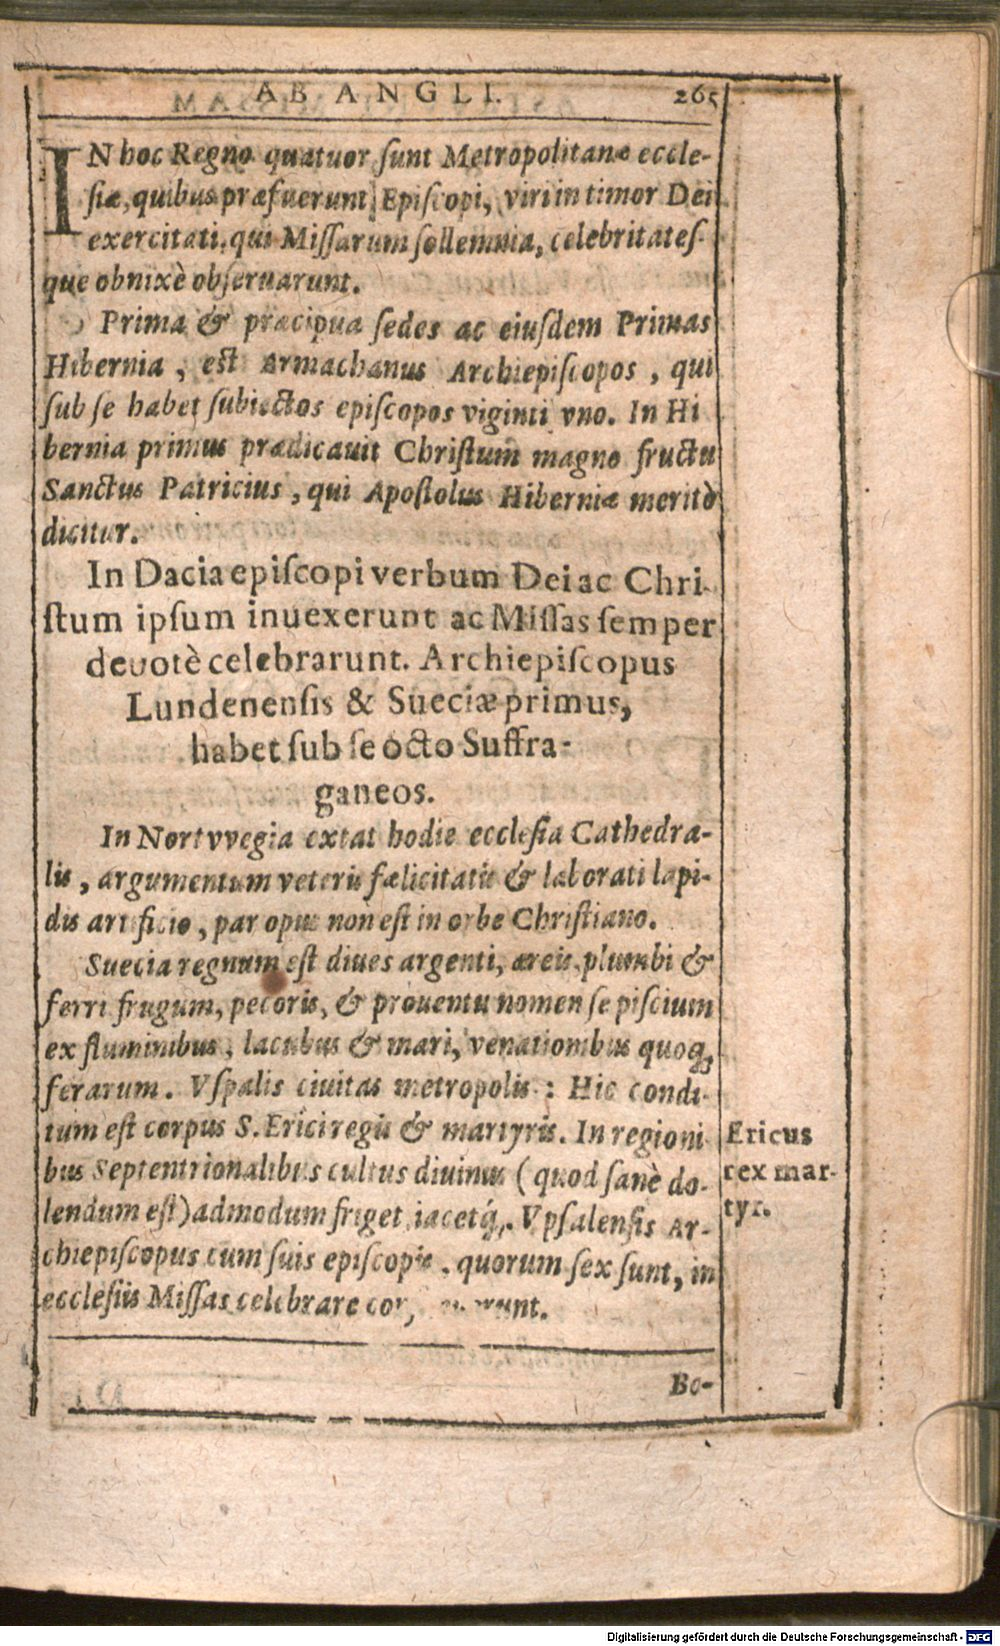 AB ANGLI. 265
IN hoc Regno quatuor sunt Metropolitanæ eccle-
siæ, quibus præfuerunt Episcopi, viri in timor Dei
exercitati, qui Missarum sollemnia, celebritates-
que obnixè obseruarunt.
Prima & præcipua sedes ac eiusdem Primas
Hibernia, est Armachanus Archiepiscopos, qui
sub se habet subiectos episcopos viginti vno. In Hi
bernia primus prædicauit Christum magno fructu
Sanctus Patricius, qui Apostolus Hiberniæ meritò
dicitur.
In Dacia episcopi verbum Dei ac Chri-
stum ipsum inuexerunt ac Missas semper
deuotè celebrarunt. Archiepiscopus
Lundenensis & Sueciæ primus,
habet sub se octo Suffra-
ganeos.
In Nortvvegia extat hodie ecclesia Cathedra-
lis, argumentum veteris fælicitatis & laborati lapi-
dis artificio, par opus non est in orbe Christiano.
Suecia regnum est diues argenti, æreis, plumbi &
ferri frugum, pecoris, & prouentu nomen se piscium
ex fluminibus, lacubus & mari, venationibus quoq;
ferarum. Vspalis ciuitas metropolis: Hic condi-
tum est corpus S. Erici regis & martyris. In regioni
bus Septentrionalibus cultus diuinus (quod sanè do-
lendum est) admodum friget, iacetq́;. Vpsalensis Ar-
chiepiscopus cum suis episcopis, quorum sex sunt, in
ecclesiis Missas celebrare
Ericus
rex mar-
tyr.
Bo-
Digitalisierung gefördert durch die Deutsche Forschungsgemeinschaft - DFG